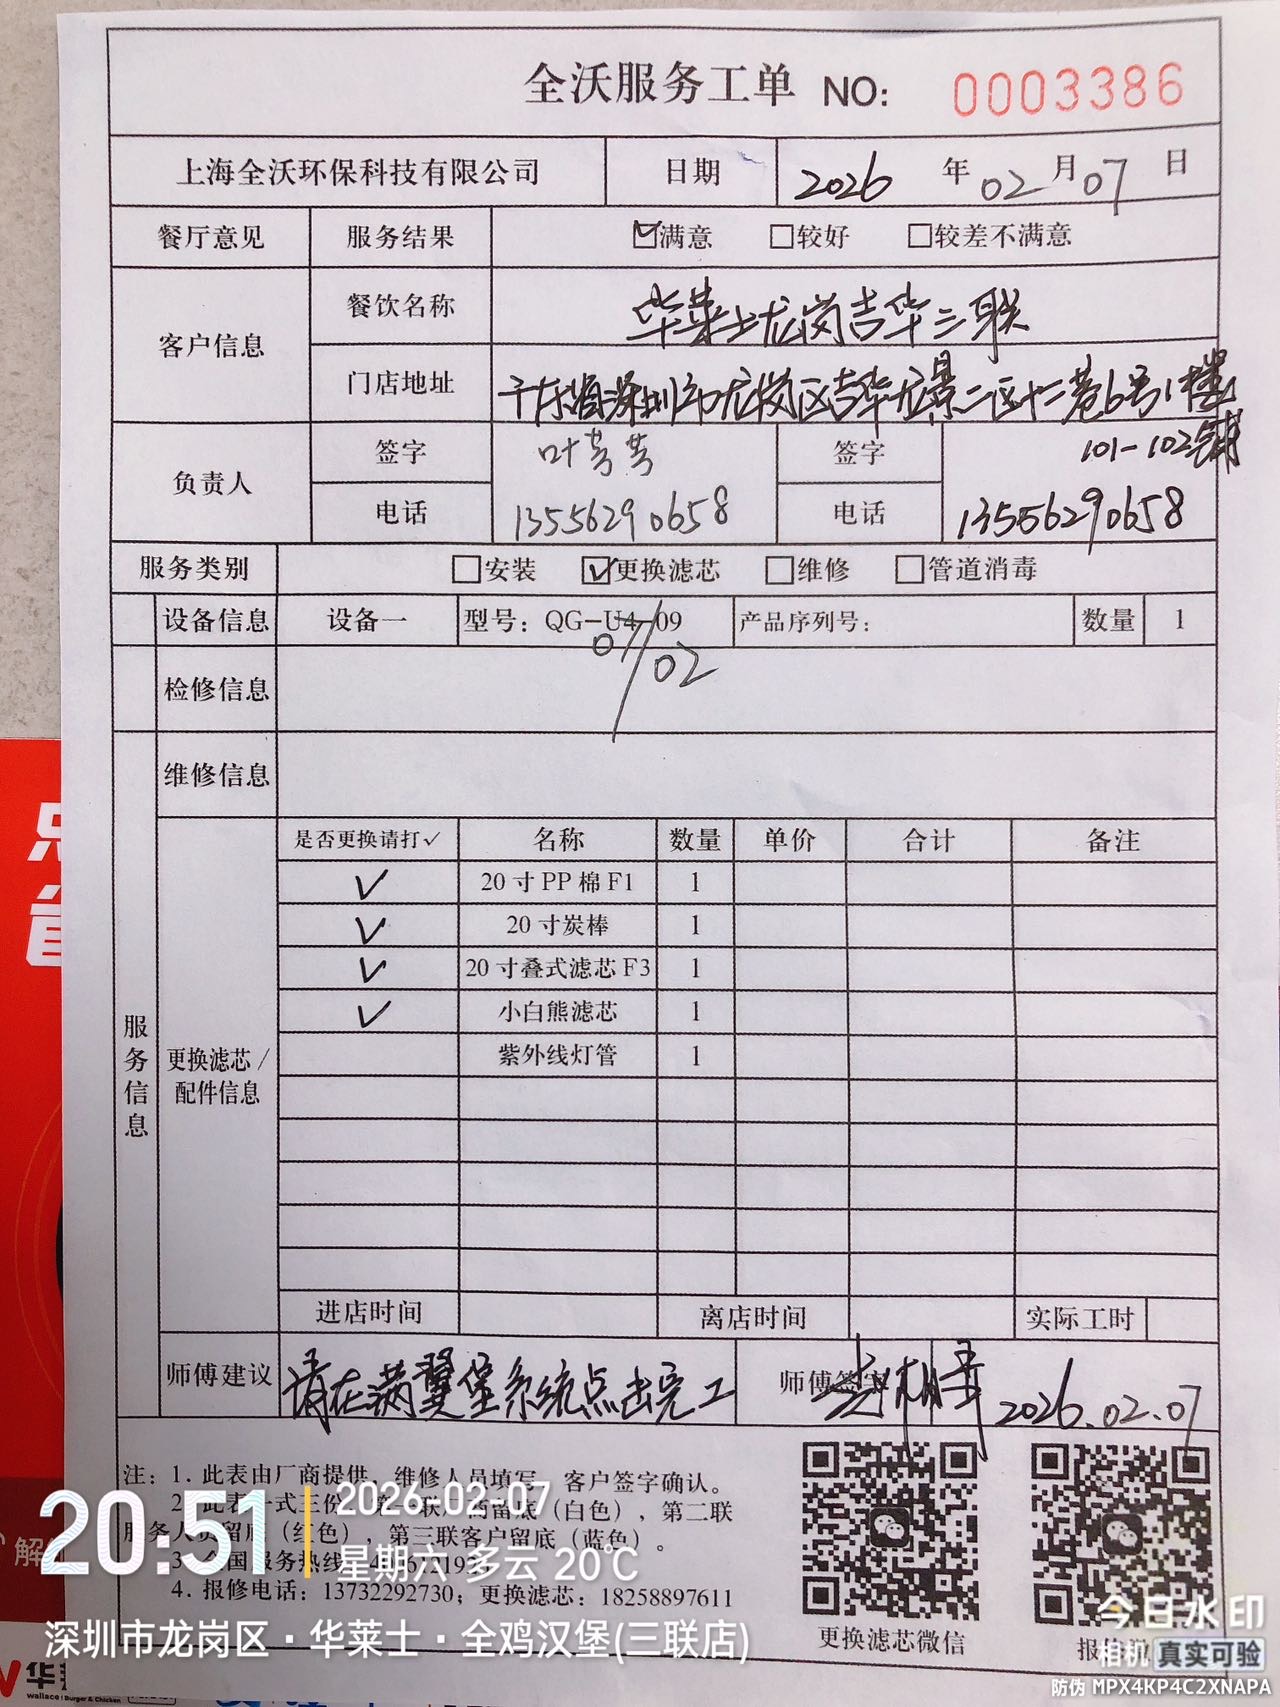 全沃服务工单 NO: 0003386
上海全沃环保科技有限公司 日期 2026 年 02 月 07 日
餐厅意见 服务结果 ☑满意 □较好 □较差不满意
客户信息 餐饮名称 华莱士龙岗吉华三联
门店地址 广东省深圳市龙岗区吉华龙景二区十二巷6号1楼
101-102铺
负责人 签字 叶芳芳 签字
电话 13556290658 电话 13556290658
服务类别 □安装 ☑更换滤芯 □维修 □管道消毒
设备信息 设备一 型号: QG-U4-09 产品序列号: 数量 1
07/02
检修信息
维修信息
服务信息
更换滤芯/配件信息
是否更换请打✓ 名称 数量 单价 合计 备注
✓ 20寸PP棉F1 1
✓ 20寸炭棒 1
✓ 20寸叠式滤芯F3 1
✓ 小白熊滤芯 1
紫外线灯管 1
进店时间 离店时间 实际工时
师傅建议 请在满翼堡系统点击完工 师傅签字 2026.02.07
注: 1. 此表由厂商提供, 维修人员填写, 客户签字确认。
2. 此表一式三份, 第一联厂商留底(白色), 第二联
服务人员留底(红色), 第三联客户留底(蓝色)。
3. 全国服务热线
4. 报修电话: 13732292730; 更换滤芯: 18258897611
更换滤芯微信
报
20:51
2026.02.07
星期六 多云 20℃
深圳市龙岗区·华莱士·全鸡汉堡(三联店)
今日水印
相机 真实可验
防伪 MPX4KP4C2XNAPA
解
华
wallace Burger & Chicken